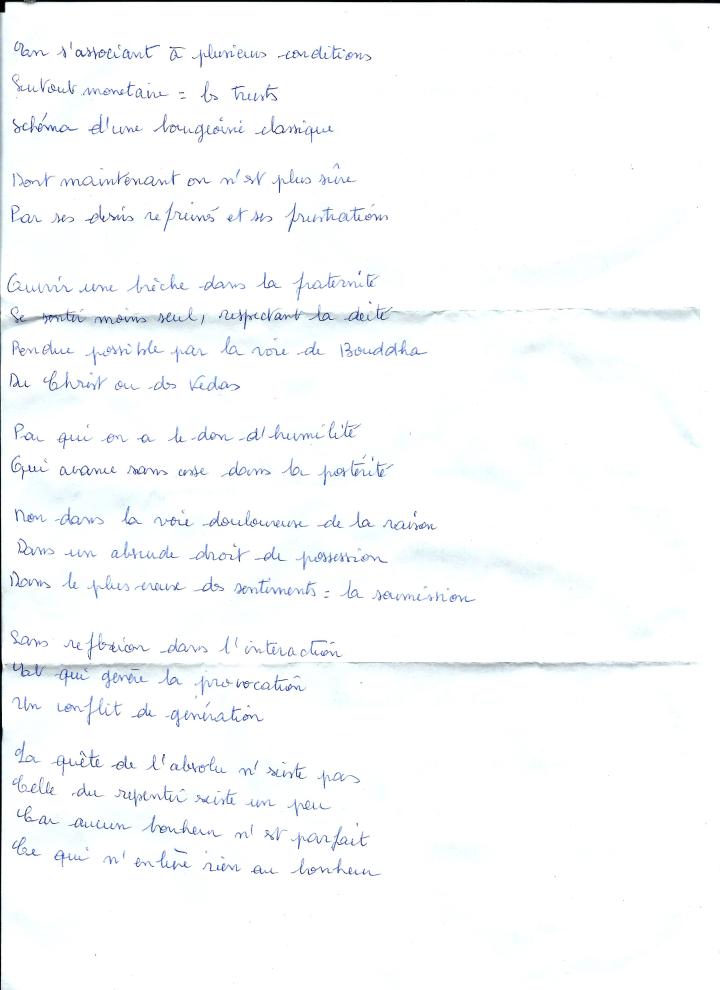 En s'associant à plusieurs conditions
Surtout monetaire = les trusts
Schéma d'une bourgeoisie classique
Dont maintenant on n'est plus sûre
Par ses desirs refreinés et ses frustrations
Ouvrir une brèche dans la fraternité
Se sentir moins seul, respectant la deité
Rendue possible par la voie de Bouddha
Du Christ ou des Vedas
Par qui on a le don d'humilité
Qui avance sans cesse dans la postérité
Non dans la voie douloureuse de la raison
Dans un absrude droit de possession
Dans le plus creux des sentiments = la soumission
Sans reflexion dans l'interaction
qui génère la provocation
Un conflit de génération
La quête de l'absolu n'existe pas
Celle du repentir existe un peu
Car aucun bonheur n'est parfait
Ce qui n'enlève rien au bonheur